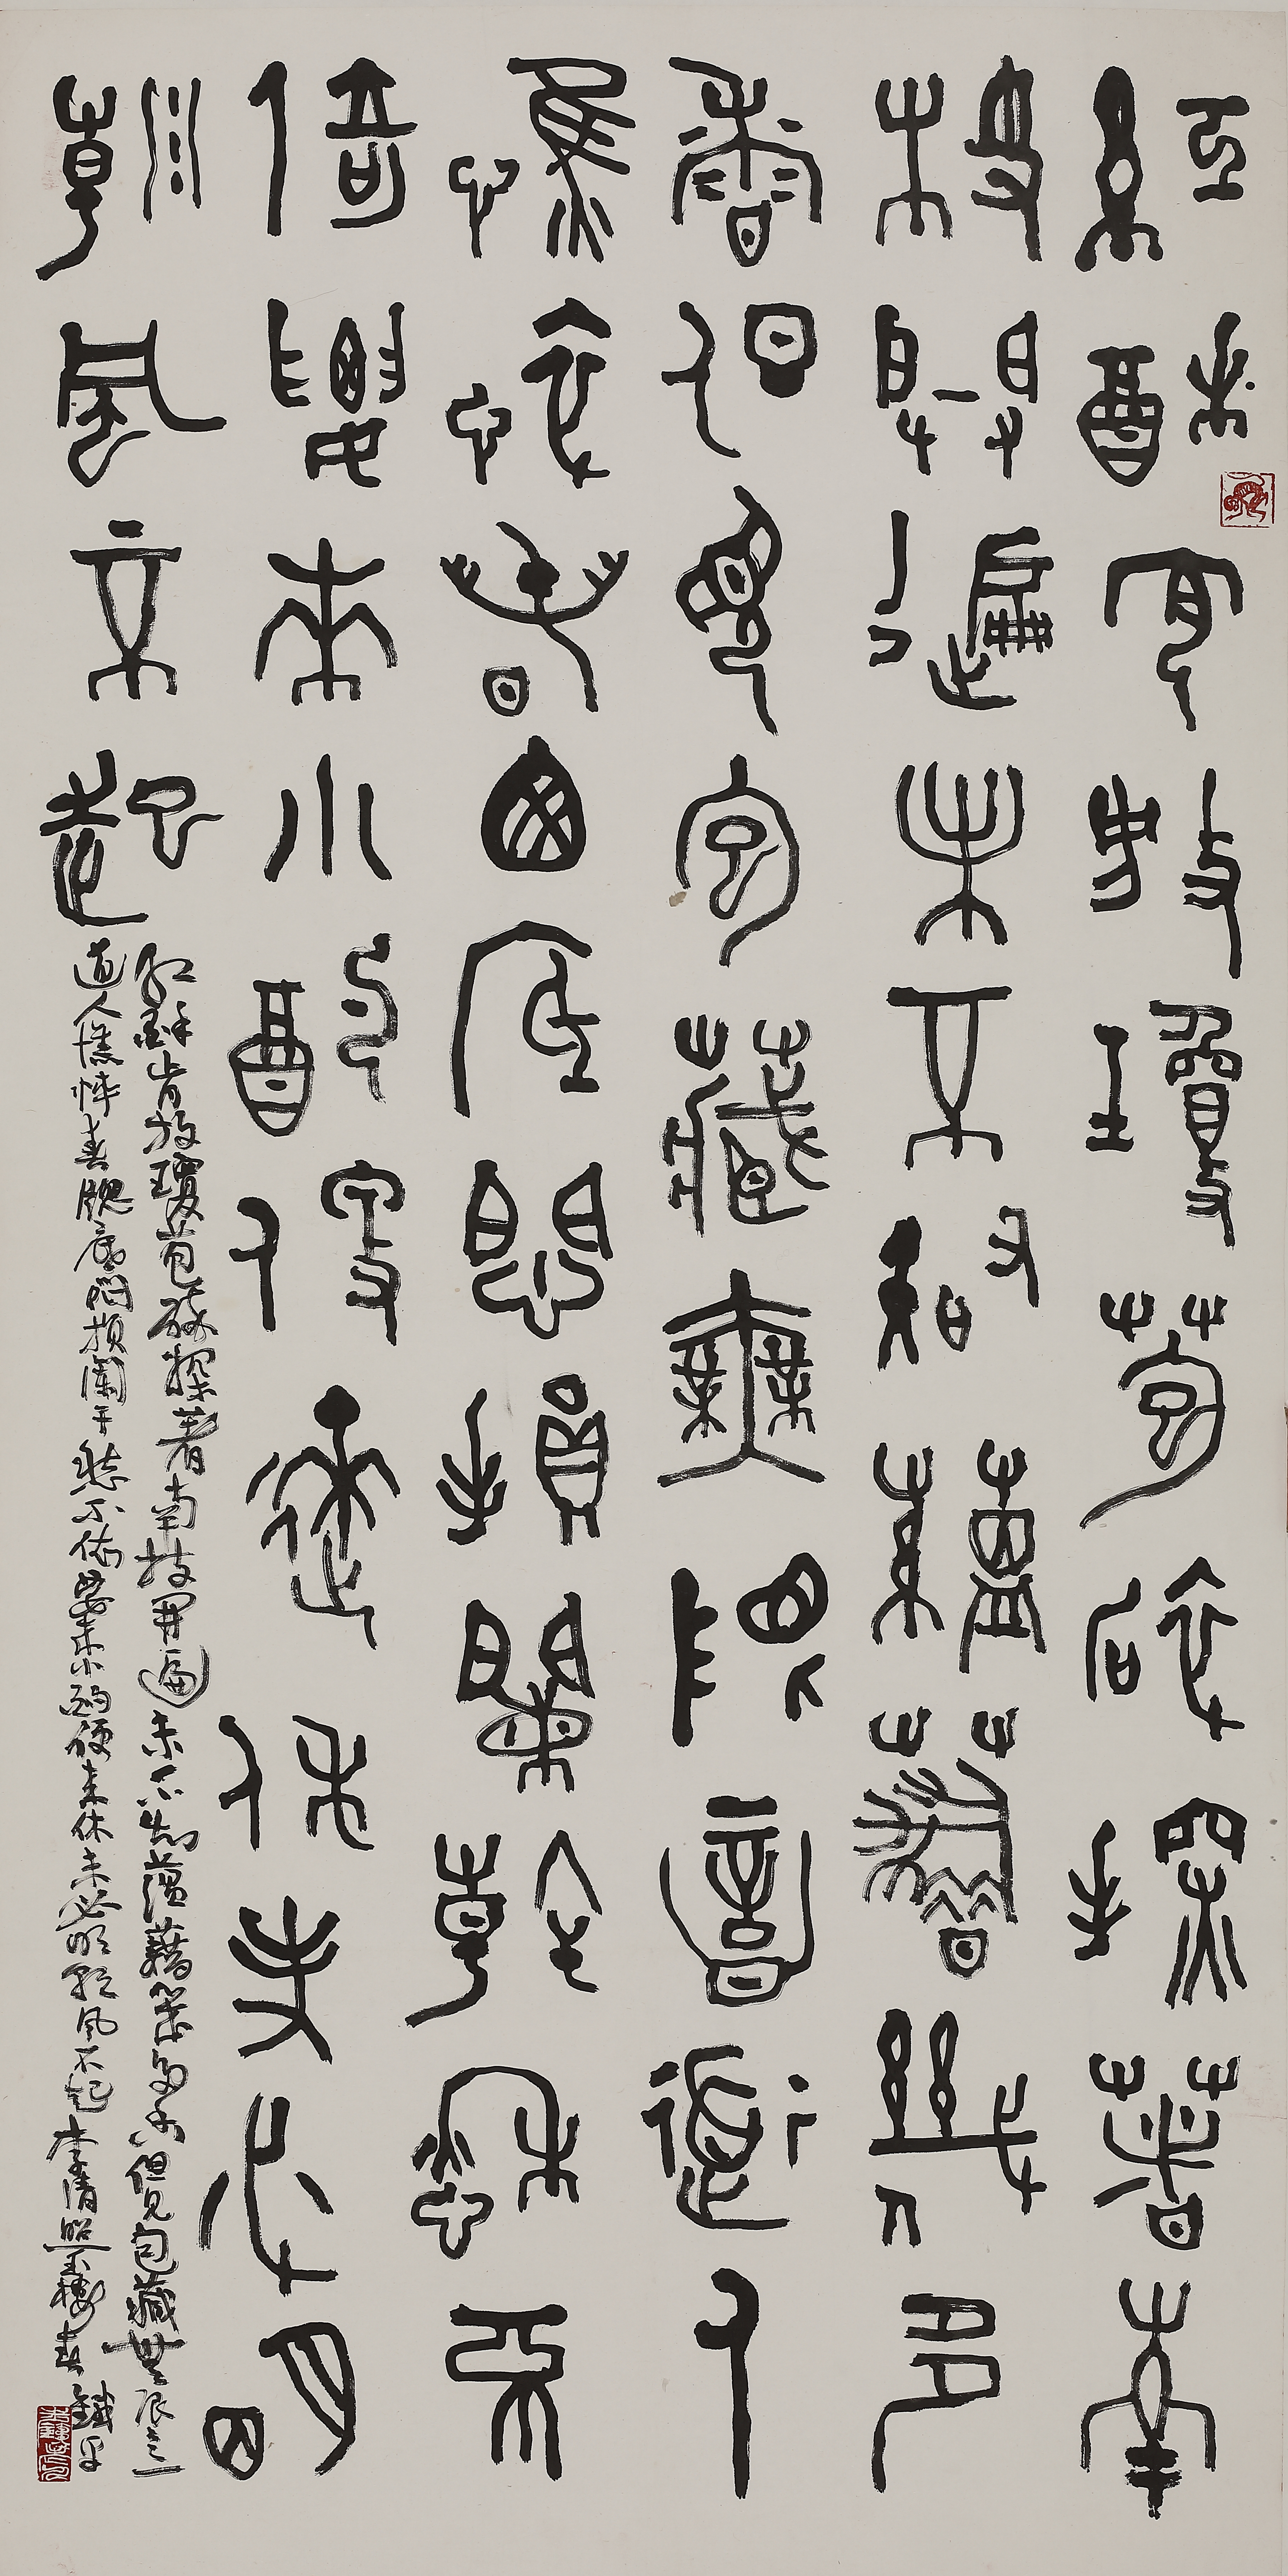 紅酥肯放瓊苞碎探著南
枝開遍未不知蘊藉幾多
香但見包藏無限意道人
憔悴春囱底悶損闌干愁不
倚要來小酌便來休未必明
朝風不起
紅酥肯放瓊苞碎探著南枝開遍未不知蘊藉幾多香但見包藏無限意
道人憔悴春牕底悶損闌干愁不倚要來小酌便來休未必明朝風不起李清照玉樓春 鐵平